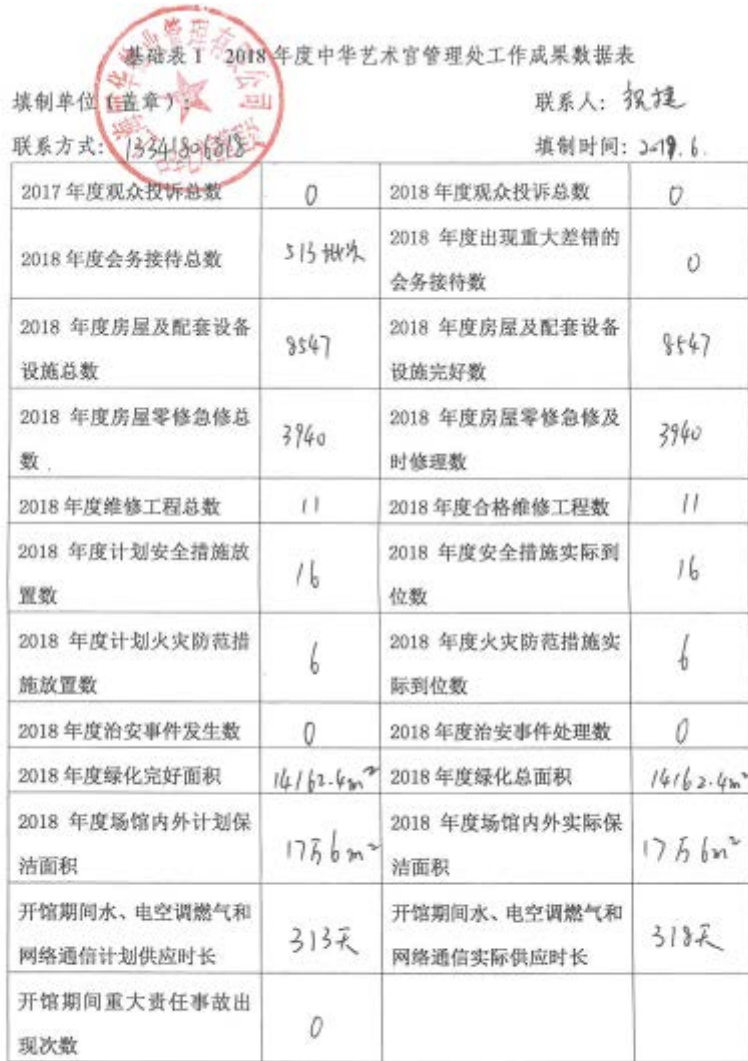 基础表 1 2018 年度中华艺术宫管理处工作成果数据表
填制单位（盖章）： 联系人：
联系方式：13341806818 填制时间：2019.6.
2017 年度观众投诉总数 0 2018 年度观众投诉总数 0
2018 年度会务接待总数 513批次 2018 年度出现重大差错的
会务接待数 0
2018 年度房屋及配套设备 8547 2018 年度房屋及配套设备 8547
设施总数 设施完好数
2018 年度房屋零修急修总 3940 2018 年度房屋零修急修及 3940
数 时修理数
2018 年度维修工程总数 11 2018 年度合格维修工程数 11
2018 年度计划安全措施放 16 2018 年度安全措施实际到 16
置数 位数
2018 年度计划火灾防范措 6 2018 年度火灾防范措施实 6
施放置数 际到位数
2018 年度治安事件发生数 0 2018 年度治安事件处理数 0
2018 年度绿化完好面积 14162.4m² 2018 年度绿化总面积 14162.4m²
2018 年度场馆内外计划保 17万6m² 2018 年度场馆内外实际保 17万6m²
洁面积 洁面积
开馆期间水、电空调燃气和 313天 开馆期间水、电空调燃气和 318天
网络通信计划供应时长 网络通信实际供应时长
开馆期间重大责任事故出 0
现次数